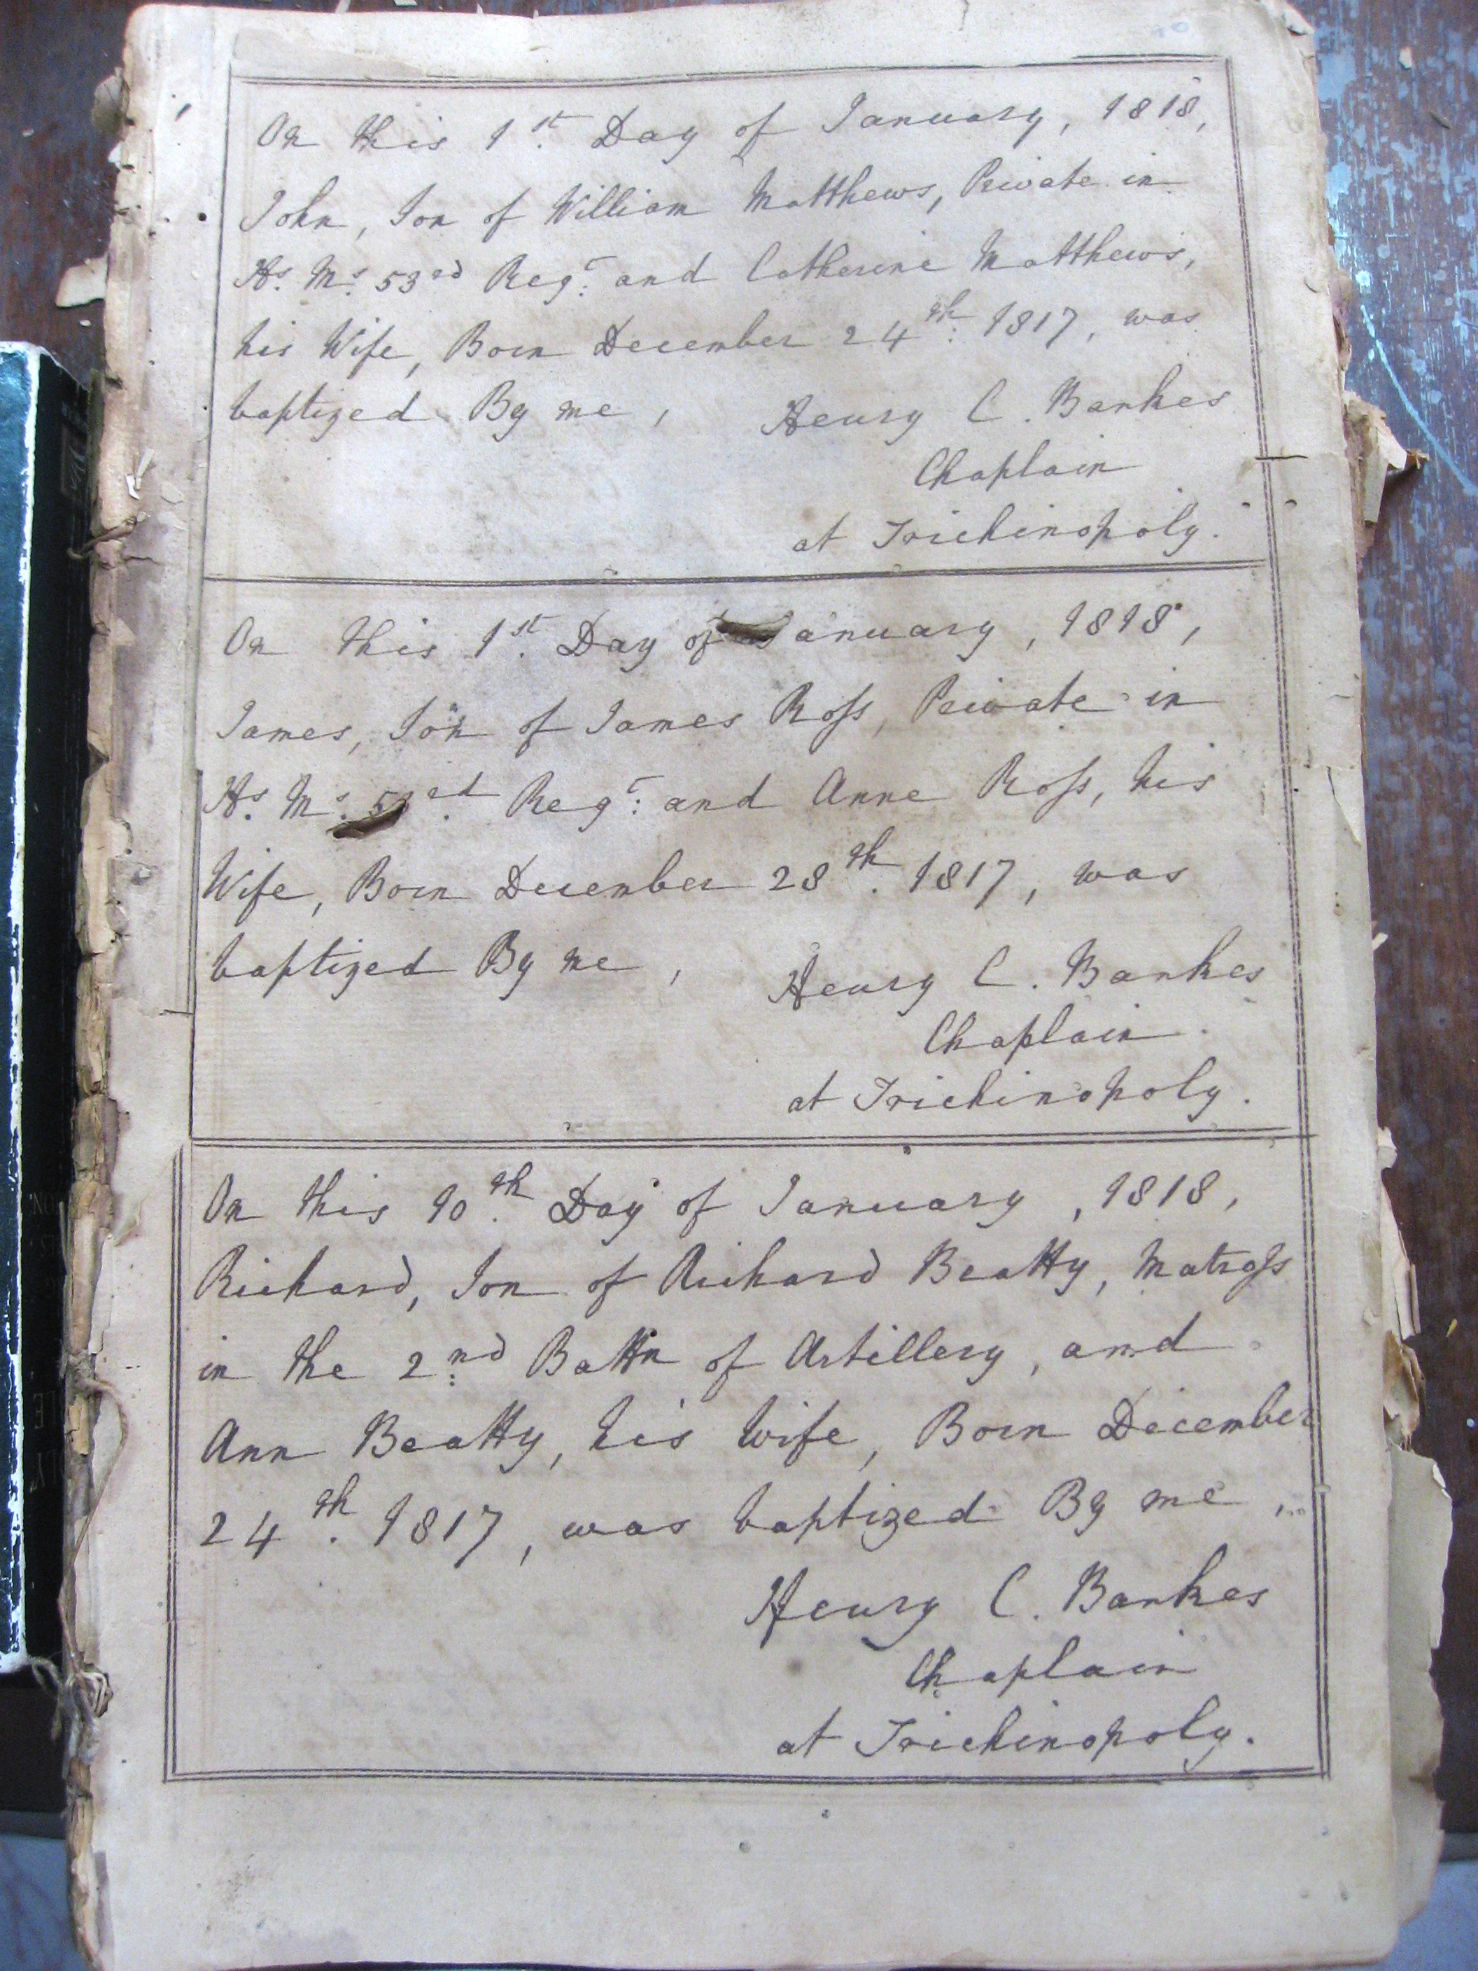 On this 1st. Day of January, 1818,
John, Son of William Matthews, Private in
Hs. Ms. 53rd Regt. and Catherine Matthews,
his Wife, Born December 24th. 1817, was
baptized By me,
Henry C. Bankes
Chaplain
at Trichinopoly.
On this 1st. Day of January, 1818,
James, Son of James Ross, Private in
Hs. Ms. 53rd. Regt: and Anne Ross, his
Wife, Born December 28th. 1817, was
baptized By me,
Henry C. Bankes
Chaplain
at Trichinopoly.
On this 10th. Day of January, 1818,
Richard, Son of Richard Beatty, Matross
in the 2nd: Battn of Artillery, and
Ann Beatty, his Wife, Born December
24th. 1817, was baptized By me,
Henry C. Bankes
Chaplain
at Trichinopoly.